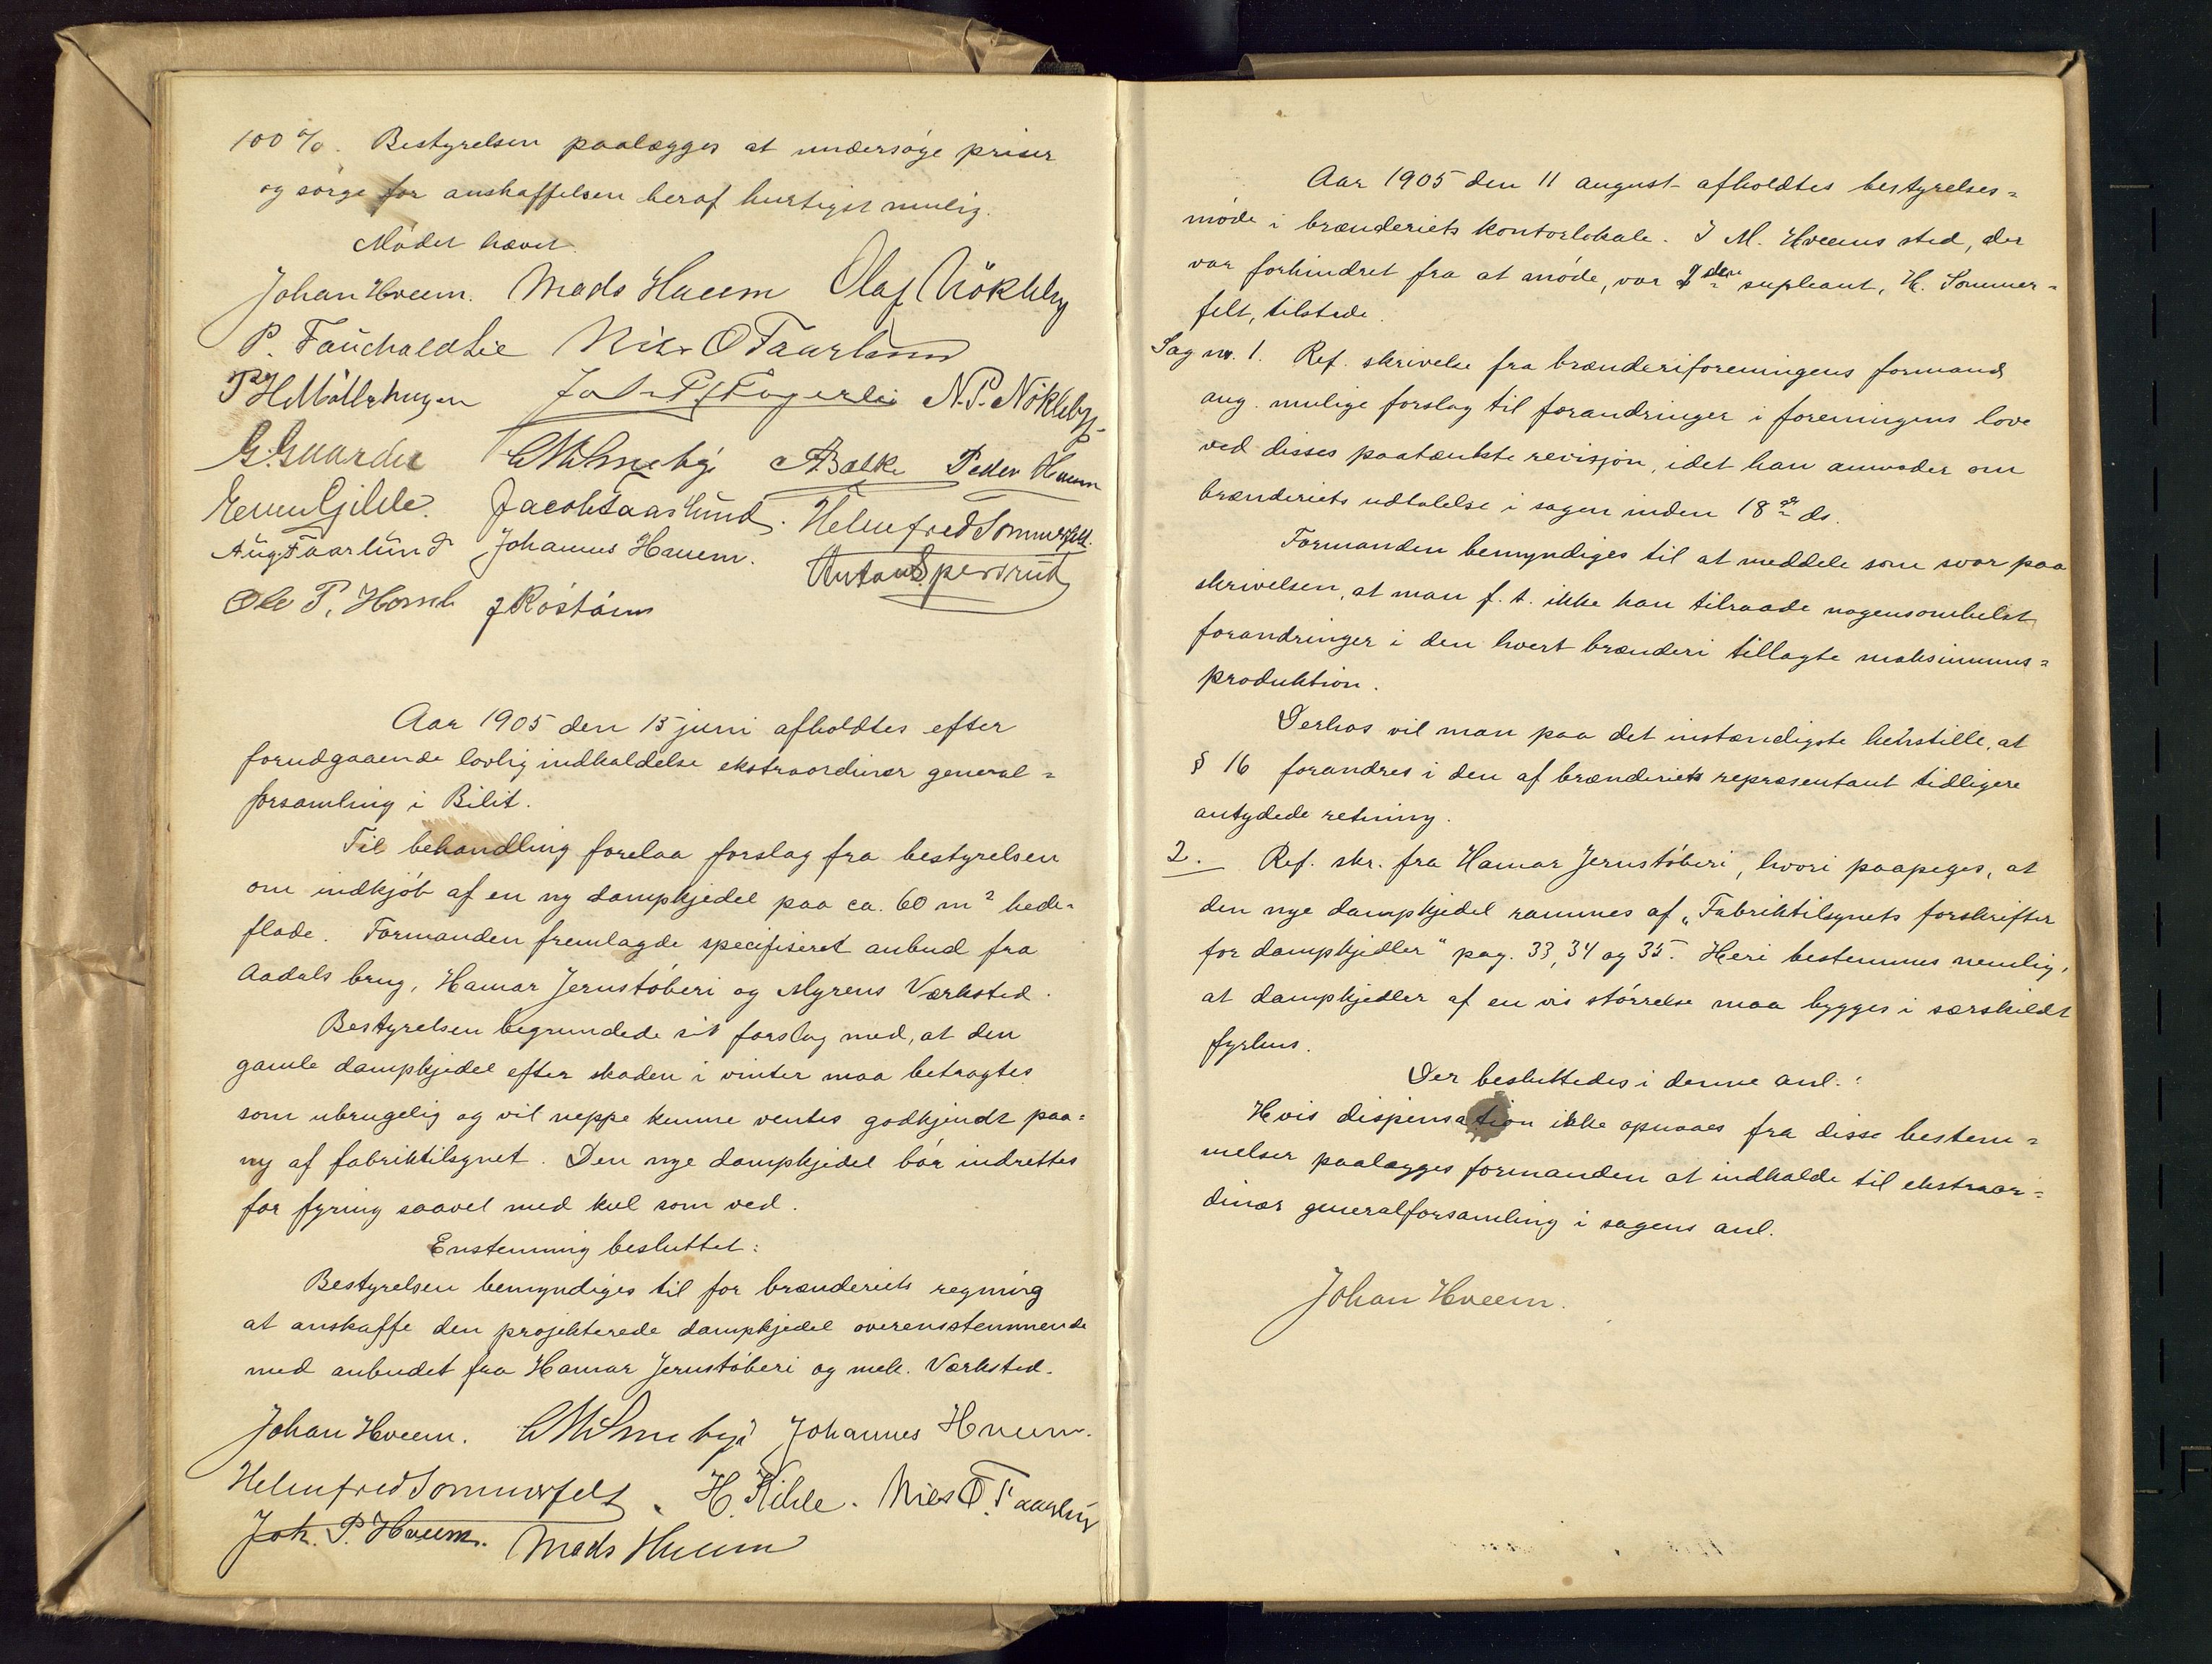 100 %. Bestyrelsen paalægges at undersøge priser
og sørge for anskaffelsen heraf hurtigst mulig.
Mødet hævet.
Johan Hveem. Mads Hveem Olaf Nökleby
P. Fauchaldlie Nils O Faarlund
P H Möllerhaugen N. P. Nökleby
G. Gaarder Balke Peder Hveem
Even Gihle. Jacob Faarlund. Helmfred Sommerfelt.
Aug. Faarlund Johannes Hveem. Anton Sperrud
Ole P. J Röstöen
Aar 1905 den 15 juni afholdtes efter
forudgaaende lovlig indkaldelse ekstraordinær general=
forsamling i Bilit.
Til behandling forelaa forslag fra bestyrelsen
om indkjøb af en ny dampkjedel paa ca. 60 m² hede-
flade. Formanden fremlagde specifiseret anbud fra
Aadals brug, Hamar Jernstøberi og Myrens Værksted.
Bestyrelsen begrundede sit forslag med, at den
gamle dampkjedel efter skaden i vinter maa betragtes
som ubrugelig og vil neppe kunne ventes godkjendt paa=
ny af fabriktilsynet. Den nye dampkjedel bør indrettes
for fyring saavel med kul som ved.
Enstemmig besluttet:
Bestyrelsen bemyndiges til for brænderiets regning
at anskaffe den projekterede dampkjedel overensstemmende
med anbudet fra Hamar Jernstøberi og mek. Værksted.
Johan Hveem. Johannes Hveem.
Helmfred Sommerfelt. H. Kihle. Nils O. Faarlund
Joh. P. Hveem. Mads Hveem
Aar 1905 den 11 august afholdtes bestyrelses=
møde i brænderiets kontorlokale. I M. Hveems sted, der
var forhindret fra at møde, var 2den supleant, H. Sommer=
felt, tilstede.
Sag nr. 1. Ref. skrivelse fra brænderiforeningens formand
ang. mulige forslag til forandringer i foreningens love
ved disses paatænkte revisjon, idet han anmoder om
brænderiets udtalelse i sagen inden 18de ds.
Formanden bemyndiges til at meddele som svar paa
skrivelsen, at man f. t. ikke kan tilraade nogensomhelst
forandringer i den hvert brænderi tillagte maksimums=
produktion.
Derhos vil man paa det instændigste henstille, at
§ 16 forandres i den af brænderiets repræsentant tidligere
antydede retning.
2. Ref. skr. fra Hamar Jernstøberi, hvori paapeges, at
den nye dampkjedel rammes af „Fabriktilsynets forskrifter
for dampkjedler" pag. 33, 34 og 35. Heri bestemmes nemlig,
at dampkjedler af en vis størrelse maa bygges i særskildt
fyrhus.
Der besluttedes i denne anl.:
Hvis dispensation ikke opnaaes fra disse bestem=
melser paalægges formanden at indkalde til ekstraor=
dinær generalforsamling i sagens anl.
Johan Hveem.